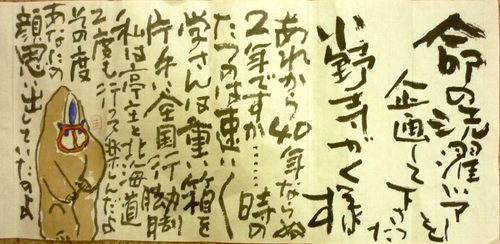 命の洗濯ツアーを
企画して下さった
小野寺がく様
あれから40年ならぬ
2年ですか……時の
たつのは速い〱
学さんは重い箱を
片手に全国行脚
私は亭主と北海道
2度も行って楽しんだよ
その度
あなたの
顔思い出していたのよ